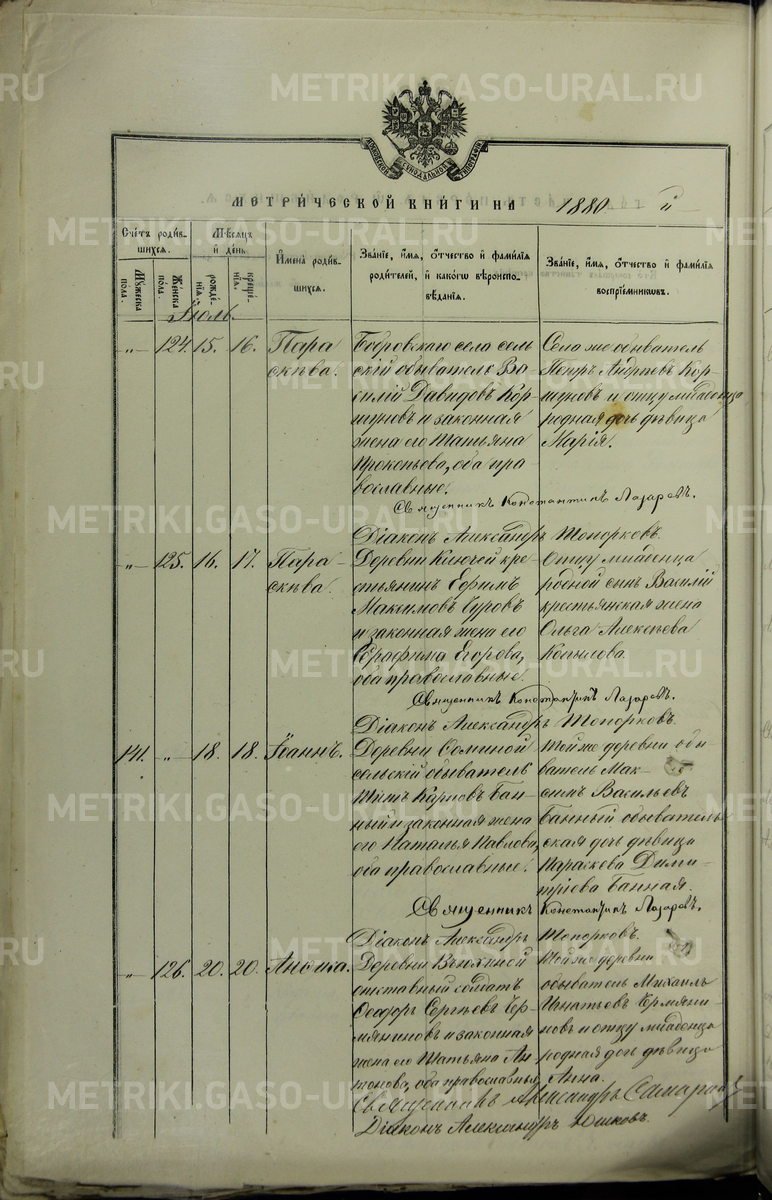 METRIKI.GASO-URAL.RU
МЕТРИ́ЧЕСКОЙ КНИ́ГИ НА 1880 й
Сче́тъ роди́в-
шихся.
Му́жеска
пола.
Же́нска
по́ла.
Мѣ́сяцъ
и́ де́нь.
рожде-
нїѧ.
креще-
нїѧ.
И҆мена̀ роди́в-
шихся.
Зва́нїе, и҆́мѧ, ѻ҆́тчество и҆ фами́лїѧ
роди́телей, и҆ како́гѡ вѣ́роиспо-
вѣ́данїѧ.
Зва́нїе, и҆́мѧ, ѻ҆́тчество и҆ фами́лїѧ
воспрїе́мникѡвъ.
Іюль.
„ 124. 15. 16.
Пара
скѣва.
Бобровскаго села сель
скій обыватель Ва
силій Давидовъ Кор
шуновъ и законная
жена его Татьяна
Прокопьева, оба пра-
вославные.
Села же обыватель
Петръ Андреевъ Кор-
шуновъ и отцу младенца
родная дочь дѣвица
Марія.
Священникъ Константинъ Лазаревъ.
Діаконъ Александръ Топорковъ.
„ 125. 16. 17.
Пара-
скѣва.
Деревни Ключей кре-
стьянинъ Ефимъ
Максимовъ Чуровъ
и законная жена его
Серафима Егорова,
оба православные.
Отцу младенца
родной сынъ Василій
крестьянская жена
Ольга Алексѣева
Копылова.
Священникъ Константинъ Лазаревъ.
Діаконъ Александръ Топорковъ.
141. „ 18. 18. Іоаннъ.
Деревни Сединой
сельскій обыватель
Титъ Карповъ Бан-
ный и законная жена
его Наталья Павлова,
оба православные.
Той же деревни обы-
ватель Мак-
симъ Васильевъ
Банный обыватель
ская дочь дѣвица
Параскева Дими-
тріева Банная.
Священникъ Константинъ Лазаревъ.
Діаконъ Александръ Топорковъ.
„ 126. 20. 20. Анна.
Деревни
отставный солдатъ
Ѳеодоръ Сергѣевъ Чер-
мяниновъ и законная
жена его Татьяна Ан
тонова, оба православныя
Той же деревни
обыватель Михаилъ
Игнатьевъ Чермяни-
новъ и отцу младенца
родная дочь дѣвица
Анна.
Священникъ Александръ
Діаконъ Александръ Юшковъ.